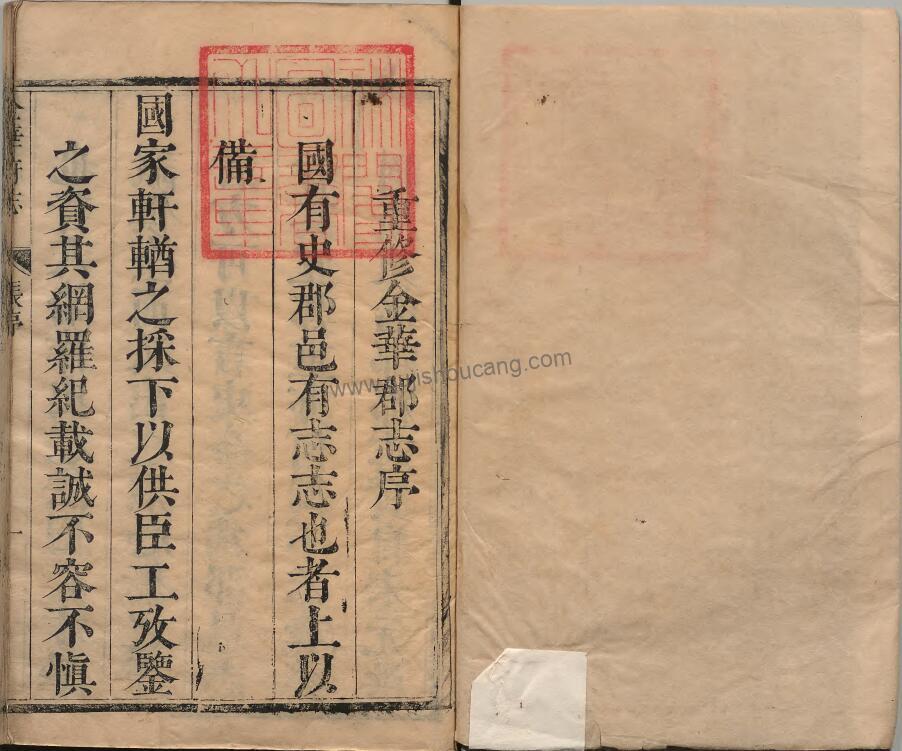 重修金華郡志序
國有史郡邑有志志也者上以
備
國家軒輶之採下以供臣工攷鑒
之資其網羅紀載誠不容不慎
金華府志
張序
一